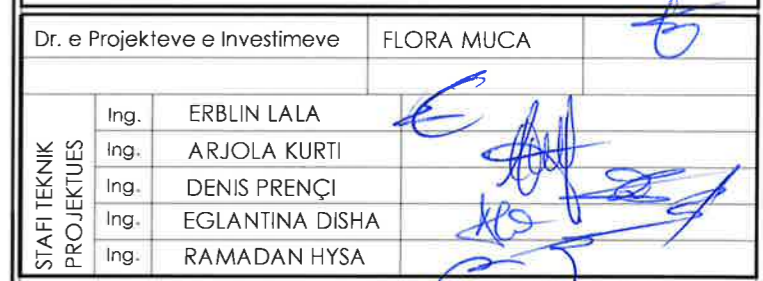 Dr. e Projekteve e Investimeve FLORA MUCA
STAFI TEKNIK PROJEKTUES
Ing. ERBLIN LALA
Ing. ARJOLA KURTI
Ing. DENIS PRENÇI
Ing. EGLANTINA DISHA
Ing. RAMADAN HYSA